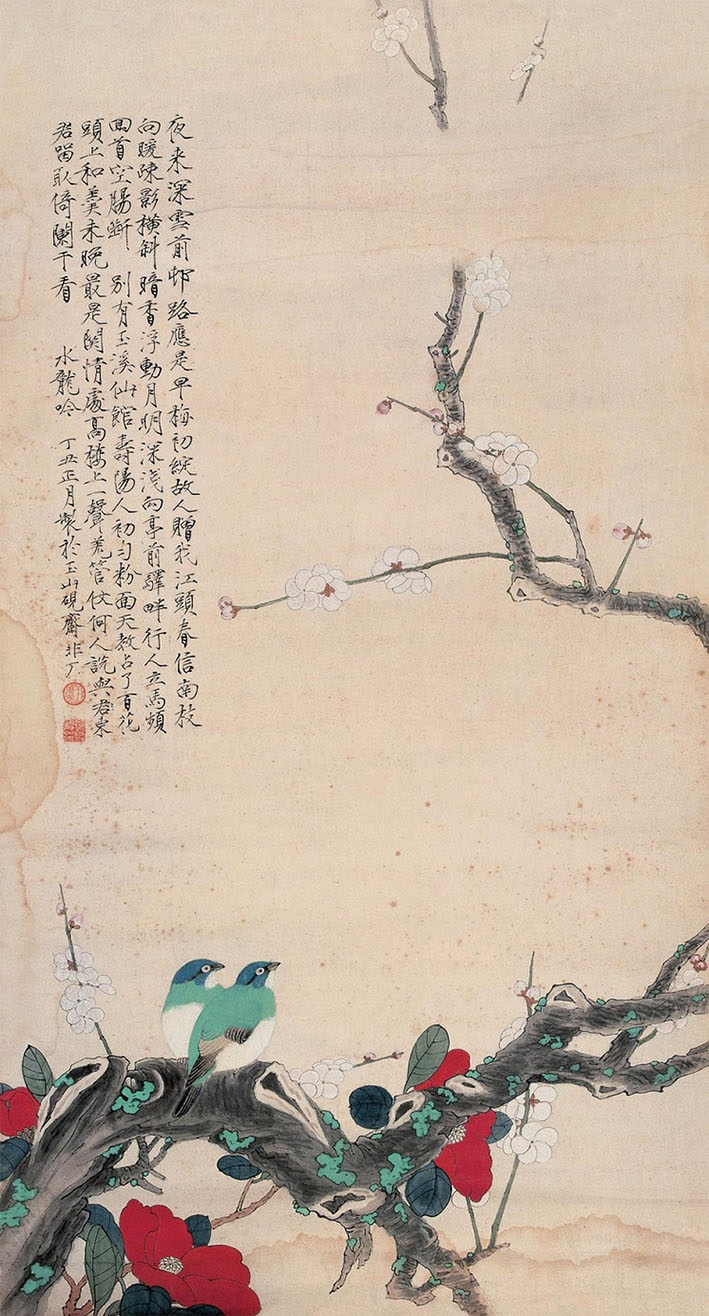 夜来深雪前邨路應是早梅初綻故人贈我江頭春信南枝
向暖疎影橫斜暗香浮動月明深淺向亭前驛畔行人立馬頻
回首空腸斷別有玉溪仙館壽陽人初勻粉面天教占了百花
頭上和羹未晚最是關情處高樓上一聲羌管仗何人說與君東
君留取倚闌干看　水龍吟　丁丑正月製於玉山硯齋非厂